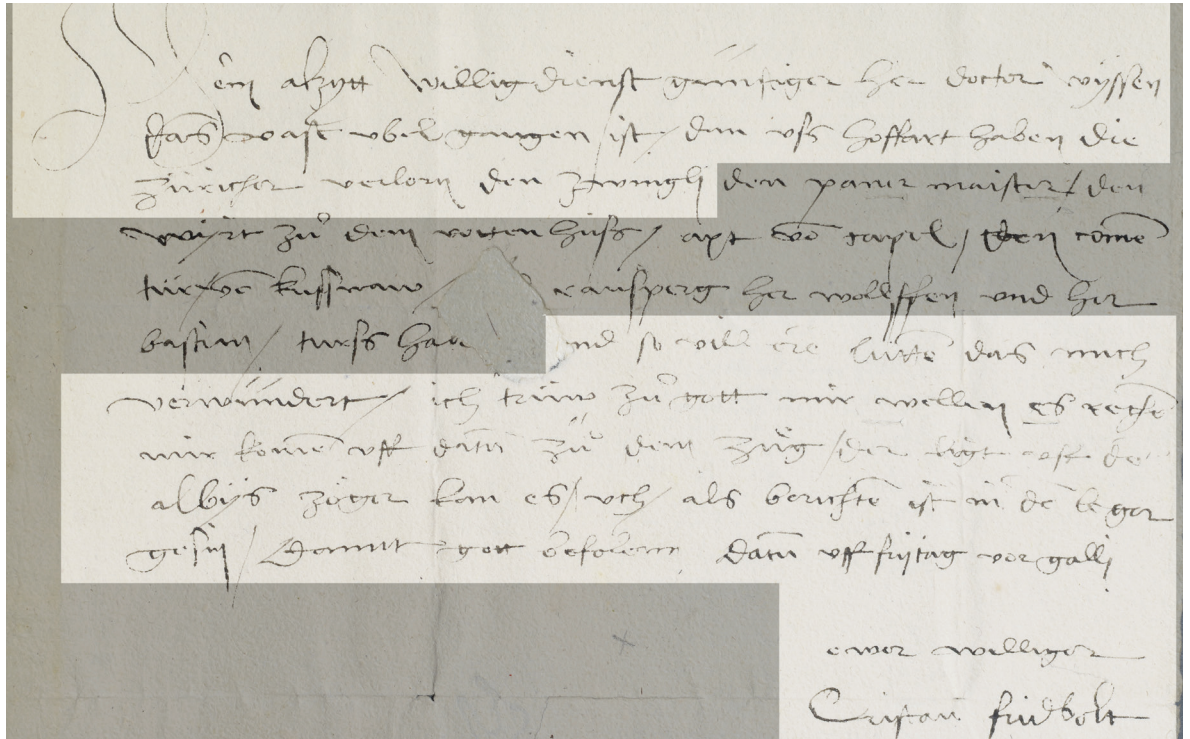 Mein alzytt willig dienst günstiger her doctor wyssen
das vast vbel gangen ist / dan vss hoffart haben die
züricher verlorn den zwingli den paner maister / den
wyrt zů dem rotten huss / apt vō capel / den comē
tür vō kussnaw ransperg her wolffen und her
bastian / turss haa nd so vill ere lüttē das mich
verwundert / ich trüw zů gott mir wellen es rechē
mir komē vff datū zů dem züg / der ligt vff dē
albys zöger kan es / vch / als berichtē ist in dē leger
gesin / Damit gott befolenn datū vff frijtag vor galli
ewer williger
Cristan fridbolt